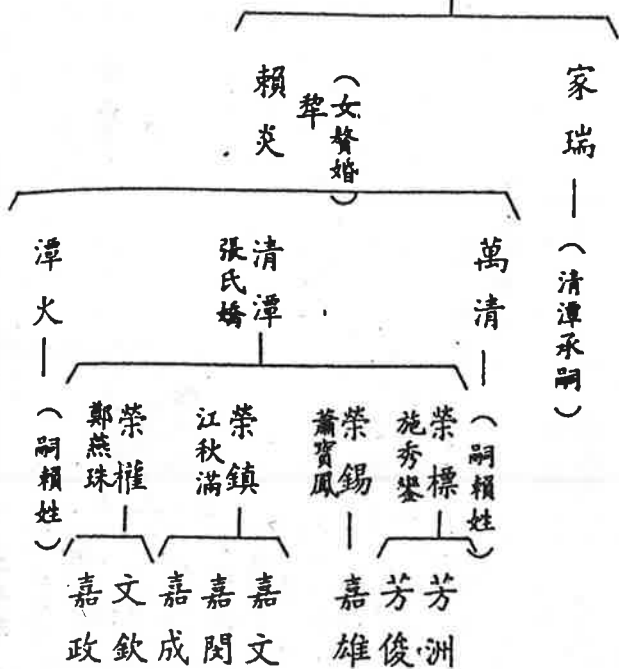 家瑞
(清潭承嗣)
(女贅婚)
犂
賴炎
萬清
(嗣賴姓)
清潭
張氏嬌
潭火
(嗣賴姓)
榮標
施秀鑾
榮錫
蕭寶鳳
榮鎮
江秋滿
榮權
鄭燕珠
芳洲
芳俊
嘉雄
嘉文
嘉閔
嘉成
文欽
嘉政